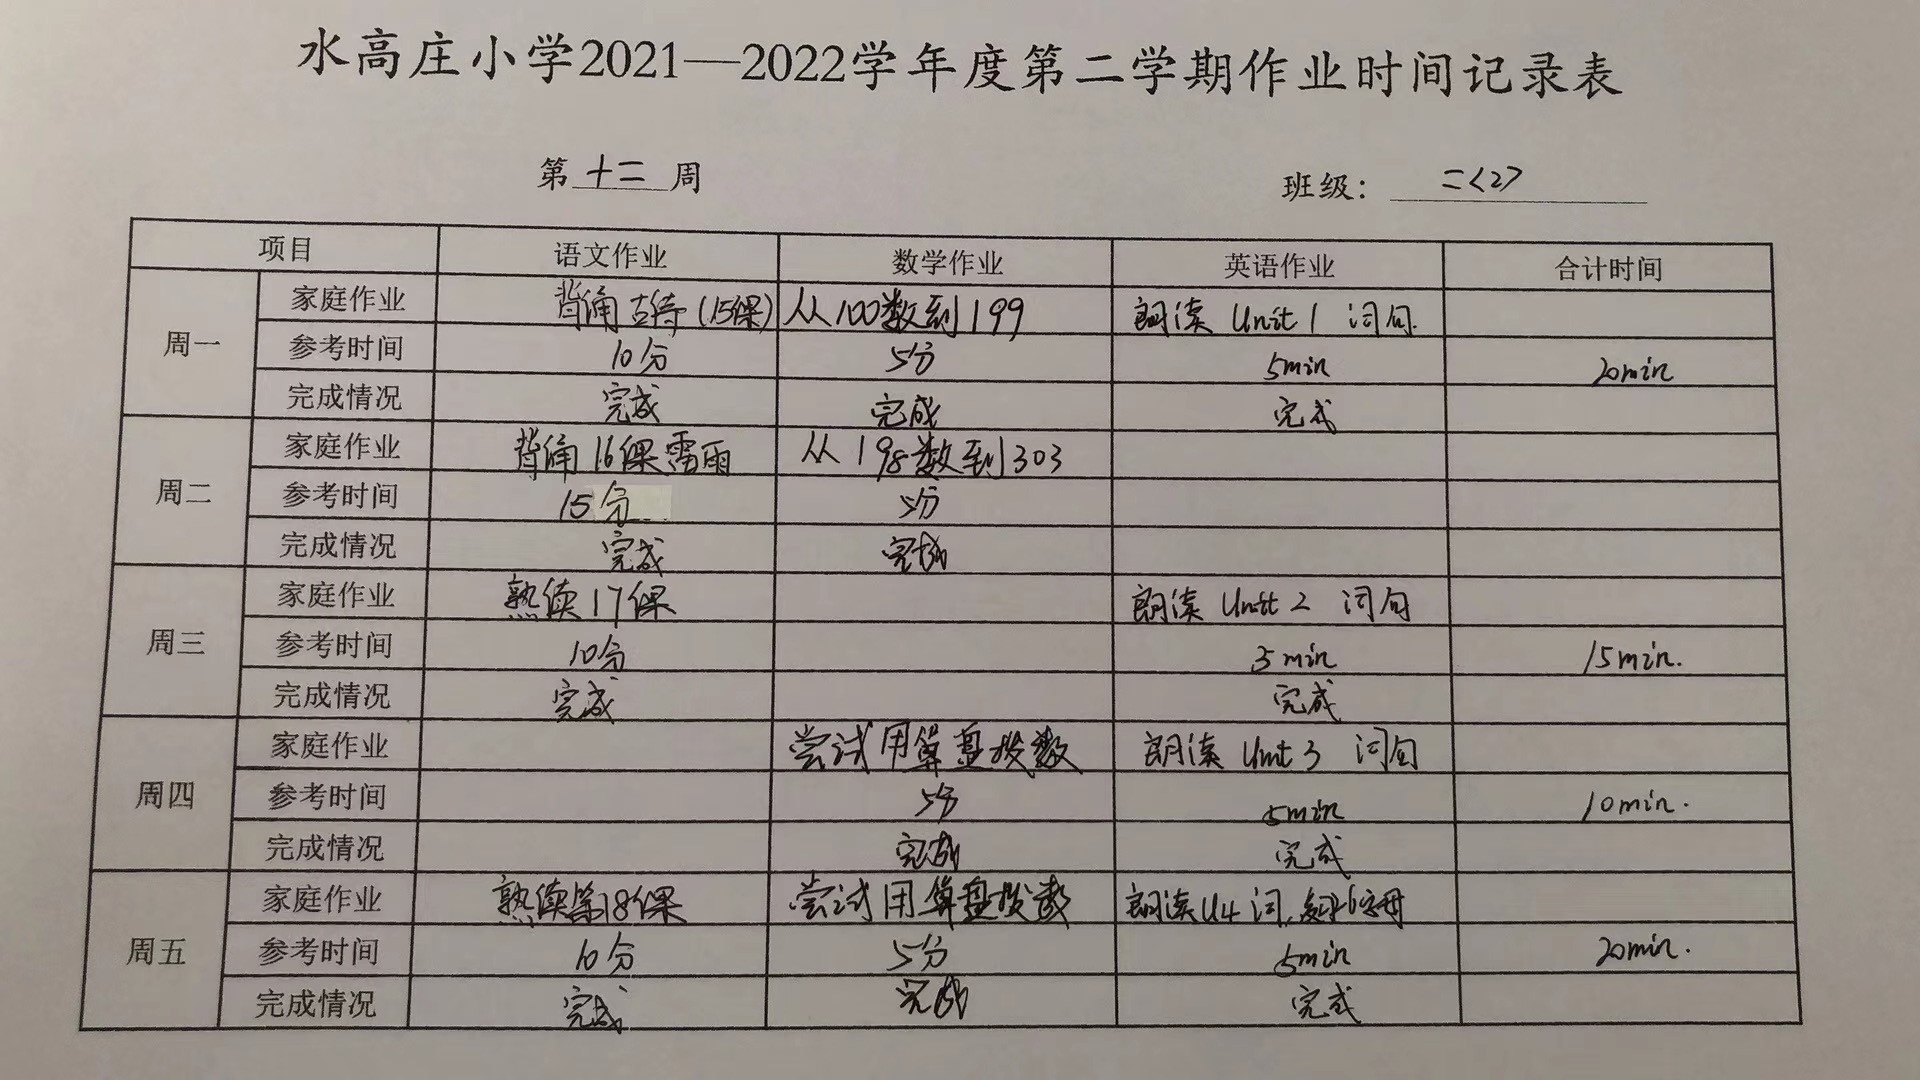 水高庄小学2021—2022学年度第二学期作业时间记录表
第 十二 周 班级： 二<2>
项目 语文作业 数学作业 英语作业 合计时间
周一
家庭作业 背诵古诗(15课) 从100数到199 朗读 Unit 1 词句.
参考时间 10分 5分 5min 20min
完成情况 完成 完成 完成
周二
家庭作业 背诵16课雷雨 从198数到303
参考时间 15分 5分
完成情况 完成 完成
周三
家庭作业 熟读17课 朗读 Unit 2 词句
参考时间 10分 5min 15min.
完成情况 完成 完成
周四
家庭作业 尝试用算盘拨数 朗读 Unit 3 词句
参考时间 5分 5min 10min.
完成情况 完成 完成
周五
家庭作业 熟读第18课 尝试用算盘拨数 朗读U4 词, 字母
参考时间 10分 5分 5min 20min.
完成情况 完成 完成 完成